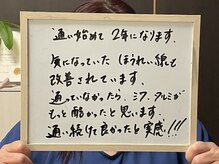 通い始めて 2年になります。
気になっていた ほうれい線も
改善されています。
通っていなかったら、シワ、タルミが
もっと酷かったと思います。
通い続けて良かったと実感!!!